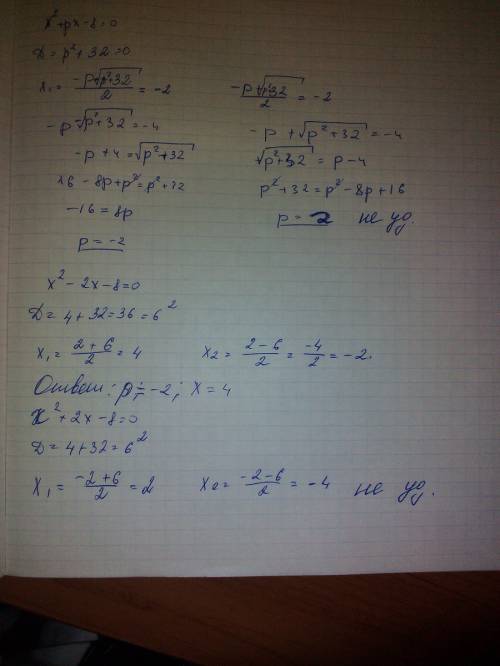 x² + px - 8 = 0
D = p² + 32 = 0
x₁ = (-p - √(p² + 32))/2 = -2
(-p + √(p² + 32))/2 = -2
-p - √(p² + 32) = -4
-p + √(p² + 32) = -4
-p + 4 = √(p² + 32)
√(p² + 32) = p - 4
16 - 8p + p² = p² + 32
p² + 32 = p² - 8p + 16
-16 = 8p
p = 2 не уд.
p = -2
x² - 2x - 8 = 0
D = 4 + 32 = 36 = 6²
x₁ = (2 + 6)/2 = 4
x₂ = (2 - 6)/2 = -4/2 = -2.
Ответ: p = -2; x = 4
x² + 2x - 8 = 0
D = 4 + 32 = 6²
x₁ = (-2 + 6)/2 = 2
x₂ = (-2 - 6)/2 = -4 не уд.